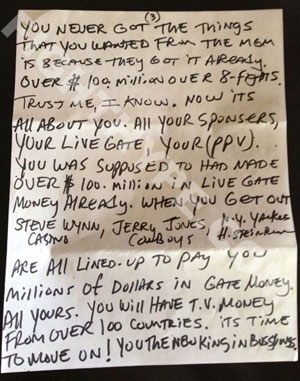 (3)
YOU NEVER GOT THE THINGS
THAT YOU WANTED FROM THE MGM
IS BECAUSE THEY GOT IT ALREADY.
OVER $100. MILLION OVER 8-FIGHTS.
TRUST ME, I KNOW. NOW ITS
ALL ABOUT YOU. ALL YOUR SPONSERS,
YOUR LIVE GATE, YOUR (PPV).
YOU WAS SUPPOSED TO HAD MADE
OVER $100. MILLION IN LIVE GATE
MONEY ALREADY. WHEN YOU GET OUT
STEVE WYNN, JERRY JONES, N.Y. YANKEE
CASINO COWBOYS H. STEINBRENNER
ARE ALL LINED-UP TO PAY YOU
MILLIONS OF DOLLARS IN GATE MONEY.
ALL YOURS. YOU WILL HAVE T.V. MONEY
FROM OVER 100 COUNTRIES. ITS TIME
TO MOVE ON! YOU THE NEW KING IN